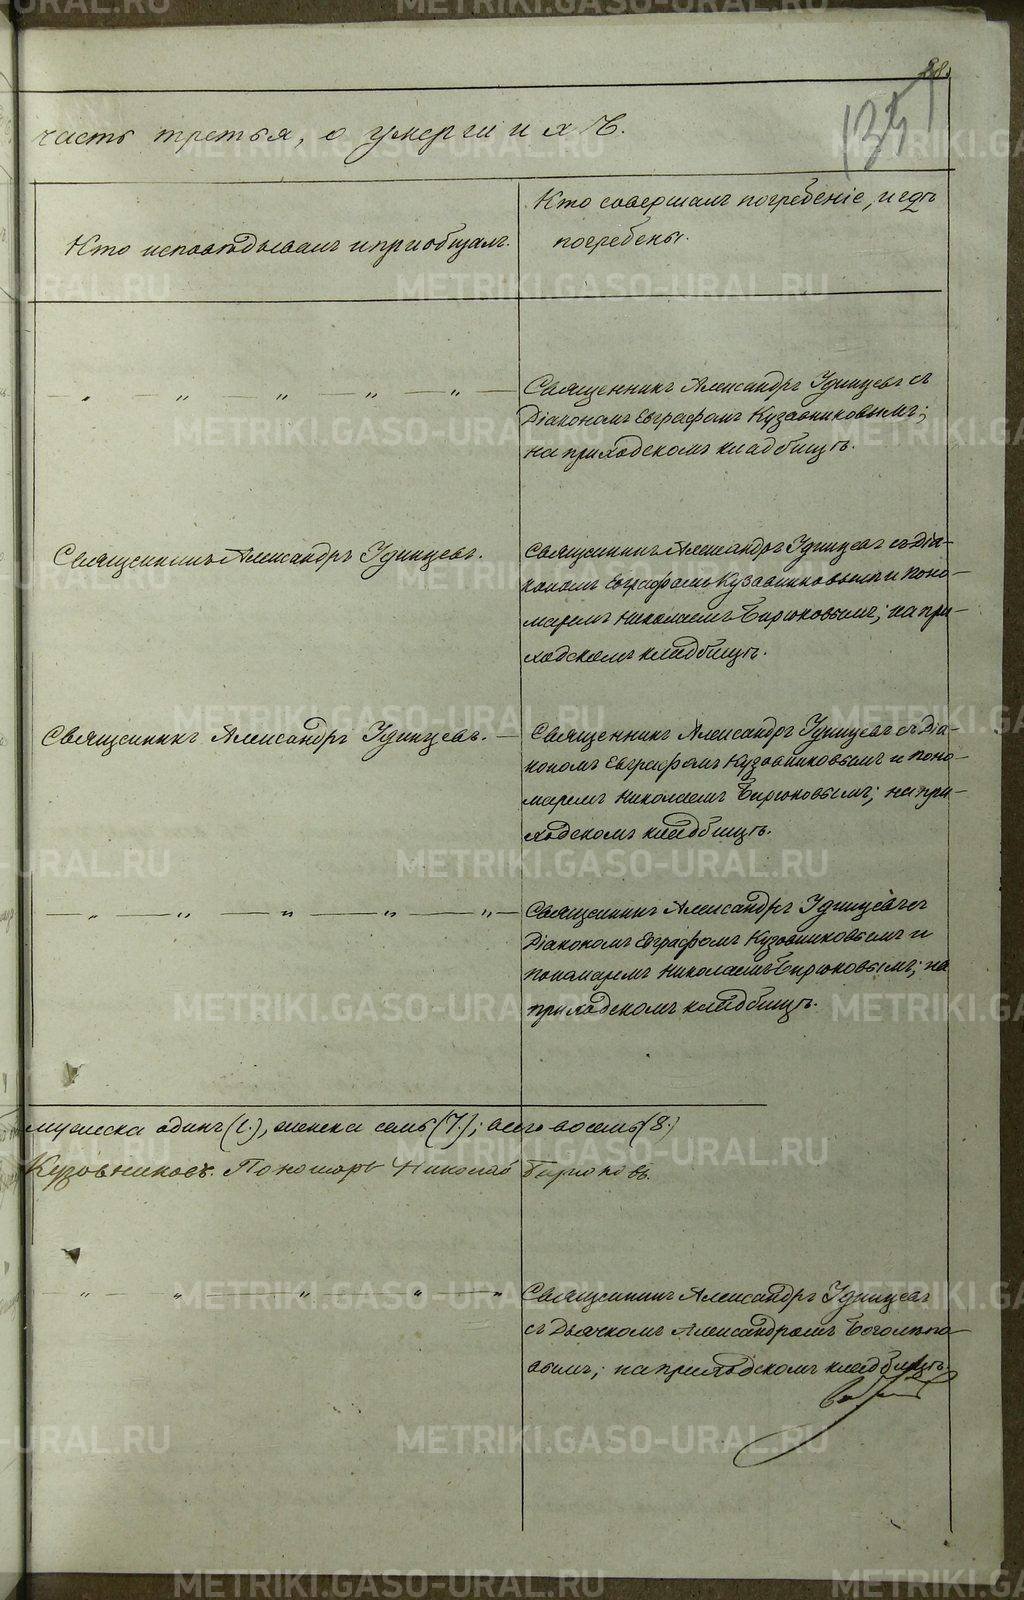 28.
135
часть третья, о умершихъ.
Кто исповѣдывалъ и приобщалъ.
Кто совершалъ погребеніе, и гдѣ
погребены.
„ „ „ „ „
Священникъ Александръ Удинцевъ съ
Діакономъ Евграфомъ Кузовниковымъ;
на приходскомъ кладбищѣ.
Священникъ Александръ Удинцевъ.
Священникъ Александръ Удинцевъ съ Діа-
кономъ Евграфомъ Кузовниковымъ и Поно-
маремъ Николаемъ Бирюковымъ; на при-
ходскомъ кладбищѣ.
Священникъ Александръ Удинцевъ.
Священникъ Александръ Удинцевъ съ Діа-
кономъ Евграфомъ Кузовниковымъ и Поно-
маремъ Николаемъ Бирюковымъ; на при-
ходскомъ кладбищѣ.
„ „ „ „ „
Священникъ Александръ Удинцевъ съ
Діакономъ Евграфомъ Кузовниковымъ и
Пономаремъ Николаемъ Бирюковымъ; на
приходскомъ кладбищѣ.
мужеска одинъ (1.), женска семь (7.); всего восемь (8.)
Кузовниковъ. Пономарь Николай Бирюковъ.
„ „ „ „ „
Священникъ Александръ Удинцевъ
съ Дьячкомъ Александромъ Боголѣпо-
вымъ; на приходскомъ кладбищѣ.
METRIKI.GASO-URAL.RU